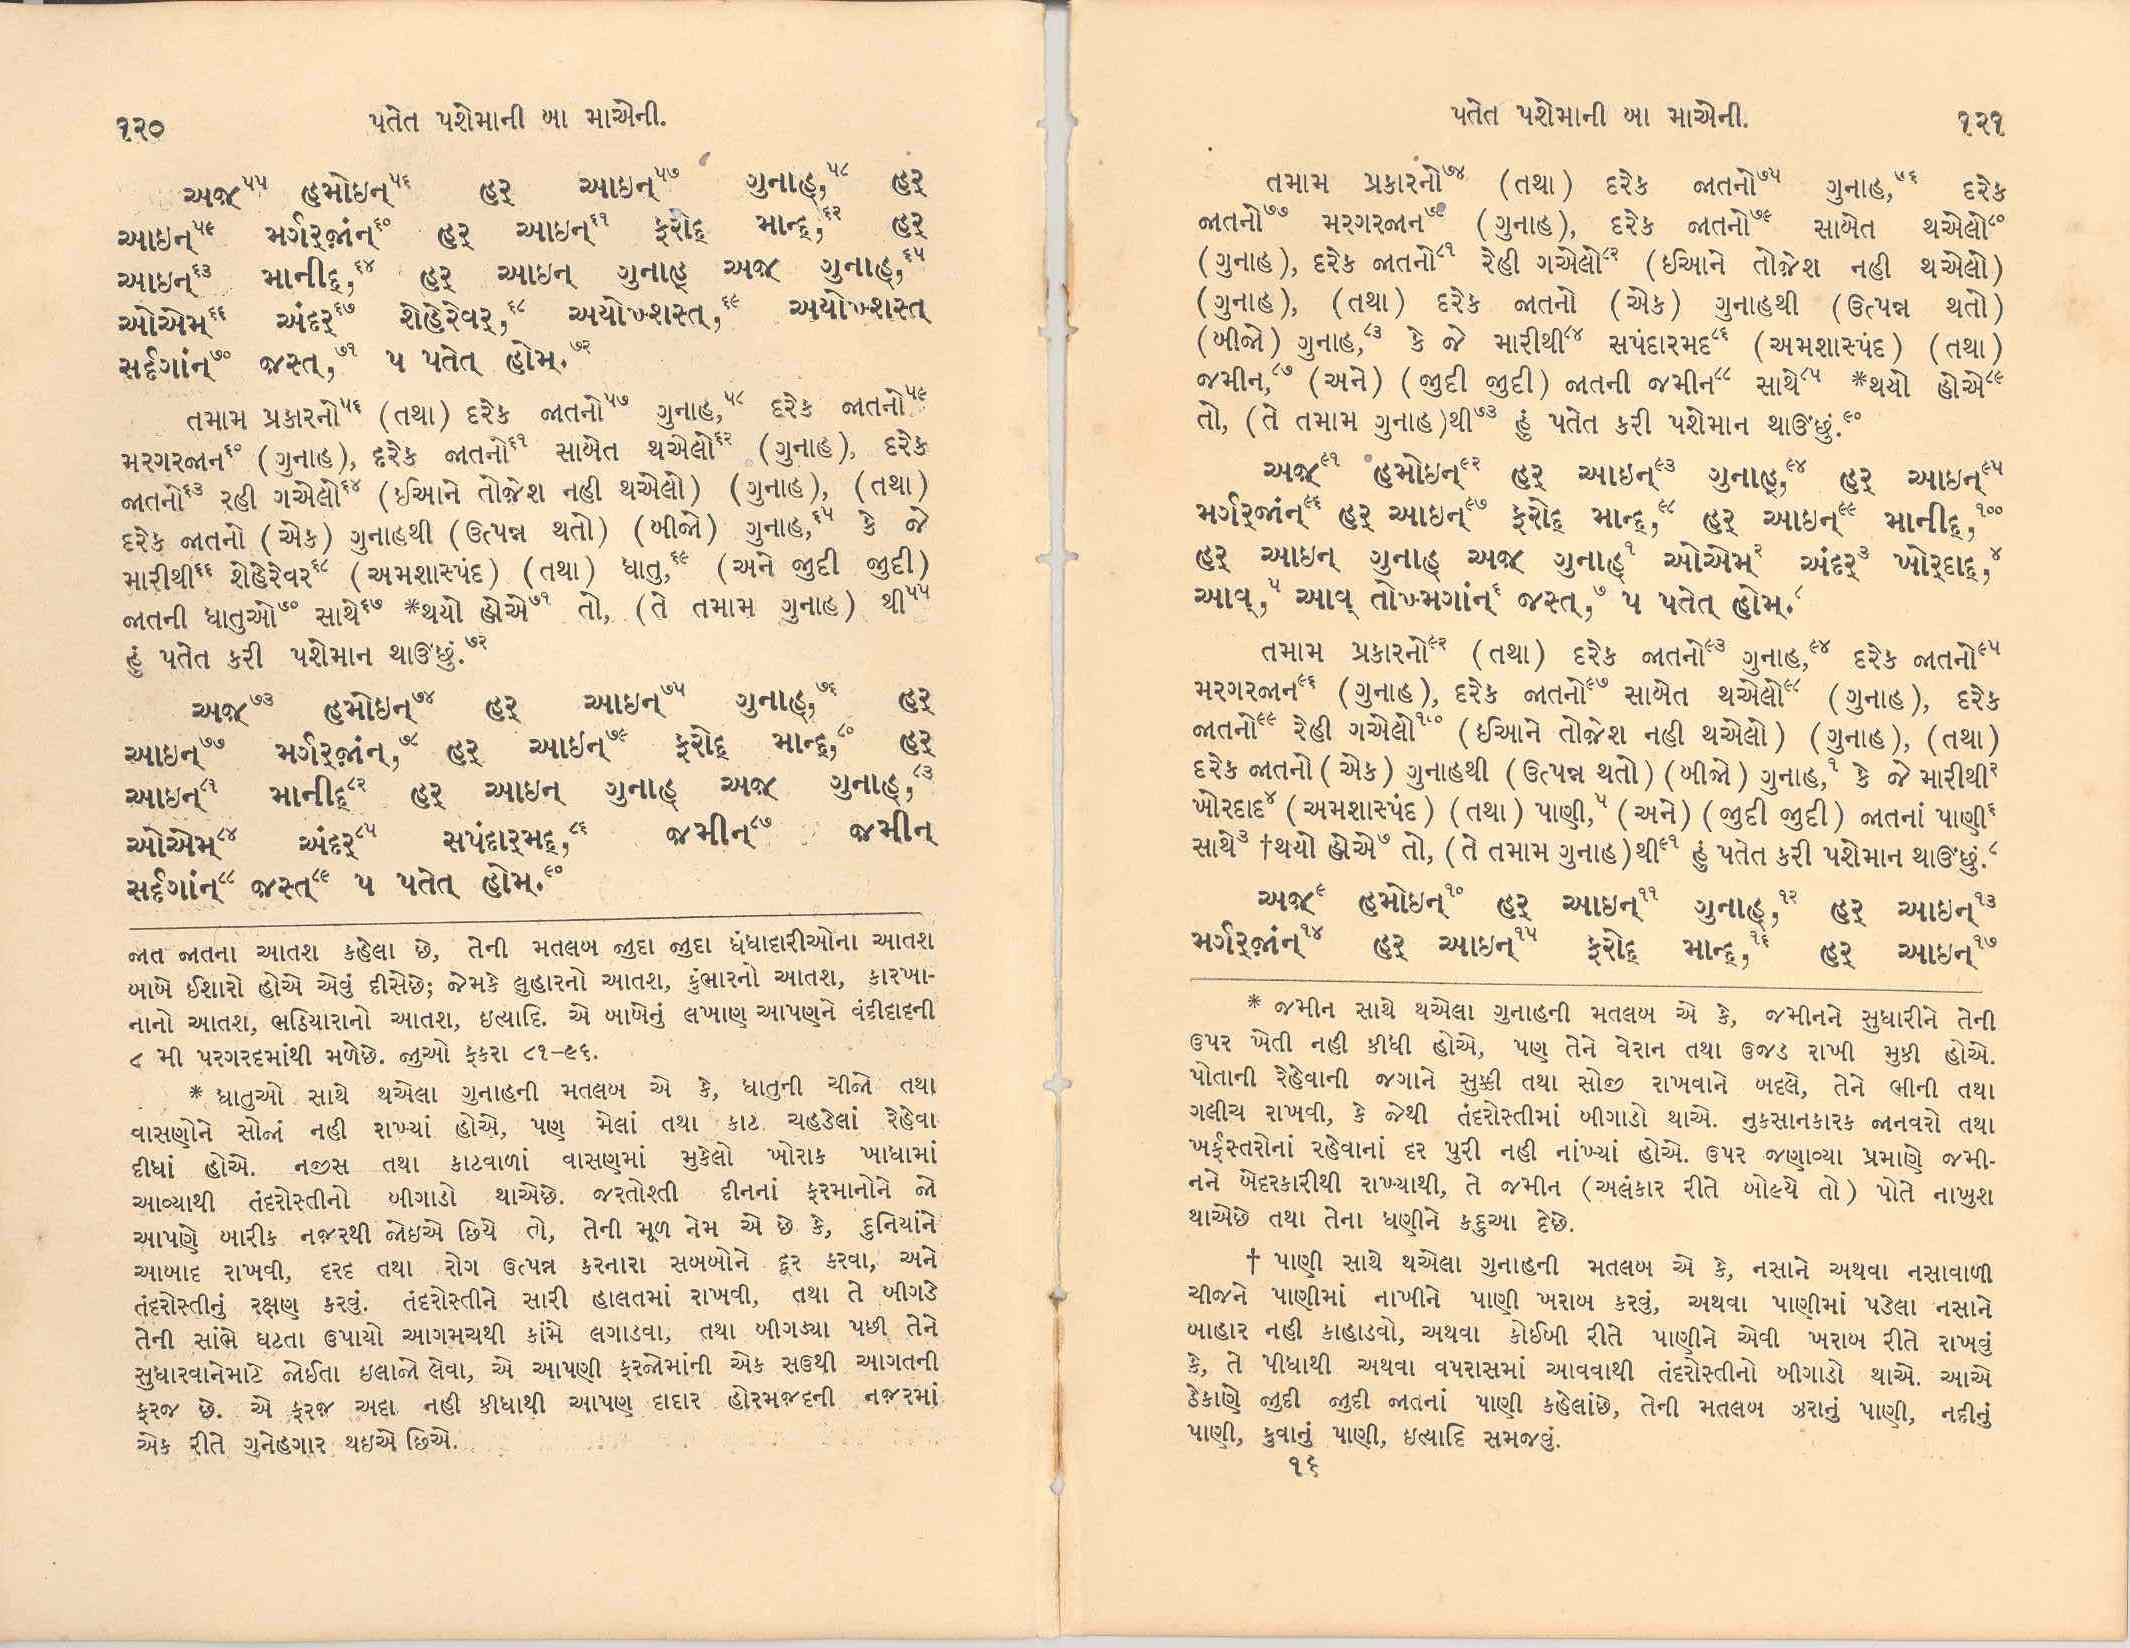 ૧૨૦ પતેત પશેમાની બા માએની.
અજ૫૫ હમોઇન્૫૬ હર્ આઇન્૫૭ ગુનાહ્,૫૮ હર્
આઇન્૫૯ મર્ગર્જાંન્૬૦ હર્ આઇન્૬૧ ફરોદ્ માન્દ્,૬૨ હર્
આઇન્૬૩ માનીદ્,૬૪ હર્ આઇન્ ગુનાહ્ અજ ગુનાહ્,૬૫
ઓએમ્૬૬ અંદર્૬૭ શેહેરેવર્,૬૮ અયોખ્શસ્ત્,૬૯ અયોખ્શસ્ત
સર્દગાંન્૭૦ જસ્ત્,૭૧ પ પતેત્ હોમ્.૭૨
તમામ પ્રકારનો૫૬ (તથા) દરેક જાતનો૫૭ ગુનાહ,૫૮ દરેક જાતનો૫૯
મરગરજાન૬૦ (ગુનાહ), દરેક જાતનો૬૧ સાબેત થએલો૬૨ (ગુનાહ), દરેક
જાતનો૬૩ રહી ગએલો૬૪ (ઈઆને તોજેશ નહી થએલો) (ગુનાહ), (તથા)
દરેક જાતનો (એક) ગુનાહથી (ઉત્પન્ન થતો) (બીજો) ગુનાહ,૬૫ કે જે
મારીથી૬૬ શેહેરેવર૬૮ (અમશાસ્પંદ) (તથા) ધાતુ,૬૯ (અને જુદી જુદી)
જાતની ધાતુઓ૭૦ સાથે૬૭ *થયો હોએ૭૧ તો, (તે તમામ ગુનાહ) થી૫૫
હું પતેત કરી પશેમાન થાઊંછું.૭૨
અજ૭૩ હમોઇન્૭૪ હર્ આઇન્૭૫ ગુનાહ્,૭૬ હર્
આઇન્૭૭ મર્ગર્જાંન્,૭૮ હર્ આઇન્૭૯ ફરોદ્ માન્દ્,૮૦ હર્
આઇન્૮૧ માનીદ્૮૨ હર્ આઇન્ ગુનાહ્ અજ ગુનાહ્,૮૩
ઓએમ્૮૪ અંદર્૮૫ સપંદારમદ્,૮૬ જમીન્૮૭ જમીન્
સર્દગાંન્૮૮ જસ્ત્૮૯ પ પતેત્ હોમ્.૯૦
જાત જાતના આતશ કહેલા છે, તેની મતલબ જુદા જુદા ધંધાદારીઓના આતશ
બાબે ઈશારો હોએ એવું દીસેછે; જેમકે લુહારનો આતશ, કુંભારનો આતશ, કારખા-
નાનો આતશ, ભઠિયારાનો આતશ, ઇત્યાદિ. એ બાબેનું લખાણ આપણને વંદીદાદની
૮ મી પરગરદમાંથી મળેછે. જુઓ ફકરા ૮૧–૯૬.
* ધાતુઓ સાથે થએલા ગુનાહની મતલબ એ કે, ધાતુની ચીજો તથા
વાસણોને સોજાં નહી રાખ્યાં હોએ, પણ મેલાં તથા કાટ ચહડેલાં રેહેવા
દીધાં હોએ. નજીસ તથા કાટવાળાં વાસણમાં મુકેલો ખોરાક ખાધામાં
આવ્યાથી તંદરોસ્તીનો બીગાડો થાએછે. જરતોશ્તી દીનનાં ફરમાનોને જો
આપણે બારીક નજરથી જોઇએ છિયે તો, તેની મૂળ નેમ એ છે કે, દુનિયાંને
આબાદ રાખવી, દરદ તથા રોગ ઉત્પન્ન કરનારા સબબોને દૂર કરવા, અને
તંદરોસ્તીનું રક્ષણ કરવું. તંદરોસ્તીને સારી હાલતમાં રાખવી, તથા તે બીગડે
તેની સાંભે ઘટતા ઉપાયો આગમચથી કાંમે લગાડવા, તથા બીગડ્યા પછી તેને
સુધારવાનેમાટે જોઈતા ઇલાજો લેવા, એ આપણી ફરજોમાંની એક સઉથી આગતની
ફરજ છે. એ ફરજ અદા નહી કીધાથી આપણ દાદાર હોરમજદની નજરમાં
એક રીતે ગુનેહગાર થઇએ છિએ.
પતેત પશેમાની બા માએની. ૧૨૧
તમામ પ્રકારનો૭૪ (તથા) દરેક જાતનો૭૫ ગુનાહ,૭૬ દરેક
જાતનો૭૭ મરગરજાન૭૮ (ગુનાહ), દરેક જાતનો૭૯ સાબેત થએલો૮૦
(ગુનાહ), દરેક જાતનો૮૧ રેહી ગએલો૮૨ (ઈઆને તોજેશ નહી થએલો)
(ગુનાહ), (તથા) દરેક જાતનો (એક) ગુનાહથી (ઉત્પન્ન થતો)
(બીજો) ગુનાહ,૮૩ કે જે મારીથી૮૪ સપંદારમદ૮૬ (અમશાસ્પંદ) (તથા)
જમીન,૮૭ (અને) (જુદી જુદી) જાતની જમીન૮૮ સાથે૮૫ *થયો હોએ૮૯
તો, (તે તમામ ગુનાહ)થી૭૩ હું પતેત કરી પશેમાન થાઊંછું.૯૦
અજ૯૧ હમોઇન્૯૨ હર્ આઇન્૯૩ ગુનાહ્,૯૪ હર્ આઇન્૯૫
મર્ગર્જાંન્૯૬ હર્ આઇન્૯૭ ફરોદ્ માન્દ્,૯૮ હર્ આઇન્૯૯ માનીદ્,૧૦૦
હર્ આઇન્ ગુનાહ્ અજ ગુનાહ્૧ ઓએમ્૨ અંદર્૩ ખોર્દાદ્,૪
આવ્,૫ આવ્ તોખ્મગાંન્૬ જસ્ત્,૭ પ પતેત્ હોમ્.૮
તમામ પ્રકારનો૯૨ (તથા) દરેક જાતનો૯૩ ગુનાહ,૯૪ દરેક જાતનો૯૫
મરગરજાન૯૬ (ગુનાહ), દરેક જાતનો૯૭ સાબેત થએલો૯૮ (ગુનાહ), દરેક
જાતનો૯૯ રેહી ગએલો૧૦૦ (ઈઆને તોજેશ નહી થએલો) (ગુનાહ), (તથા)
દરેક જાતનો (એક) ગુનાહથી (ઉત્પન્ન થતો) (બીજો) ગુનાહ,૧ કે જે મારીથી૨
ખોરદાદ૪ (અમશાસ્પંદ) (તથા) પાણી,૫ (અને) (જુદી જુદી) જાતનાં પાણી૬
સાથે૩ †થયો હોએ૭ તો, (તે તમામ ગુનાહ)થી૯૧ હું પતેત કરી પશેમાન થાઊંછું.૮
અજ૯ હમોઇન્૧૦ હર્ આઇન્૧૧ ગુનાહ્,૧૨ હર્ આઇન્૧૩
મર્ગર્જાંન્૧૪ હર્ આઇન્૧૫ ફરોદ્ માન્દ્,૧૬ હર્ આઇન્૧૭
* જમીન સાથે થએલા ગુનાહની મતલબ એ કે, જમીનને સુધારીને તેની
ઉપર ખેતી નહી કીધી હોએ, પણ તેને વેરાન તથા ઉજડ રાખી મુકી હોએ.
પોતાની રેહેવાની જગાને સુક્કી તથા સોજી રાખવાને બદલે, તેને ભીની તથા
ગલીચ રાખવી, કે જેથી તંદરોસ્તીમાં બીગાડો થાએ. નુકસાનકારક જાનવરો તથા
ખર્ફસ્તરોનાં રહેવાનાં દર પુરી નહી નાંખ્યાં હોએ. ઉપર જણાવ્યા પ્રમાણે જમી-
નને બેદરકારીથી રાખ્યાથી, તે જમીન (અલંકાર રીતે બોલ્યે તો) પોતે નાખુશ
થાએછે તથા તેના ધણીને કદુઆ દેછે.
† પાણી સાથે થએલા ગુનાહની મતલબ એ કે, નસાને અથવા નસાવાળી
ચીજને પાણીમાં નાખીને પાણી ખરાબ કરવું, અથવા પાણીમાં પડેલા નસાને
બાહાર નહી કાહાડવો, અથવા કોઈબી રીતે પાણીને એવી ખરાબ રીતે રાખવું
કે, તે પીધાથી અથવા વપરાસમાં આવવાથી તંદરોસ્તીનો બીગાડો થાએ. આએ
ઠેકાણે જુદી જુદી જાતનાં પાણી કહેલાંછે, તેની મતલબ ઝરાનું પાણી, નદીનું
પાણી, કુવાનું પાણી, ઇત્યાદિ સમજવું.
૧૬